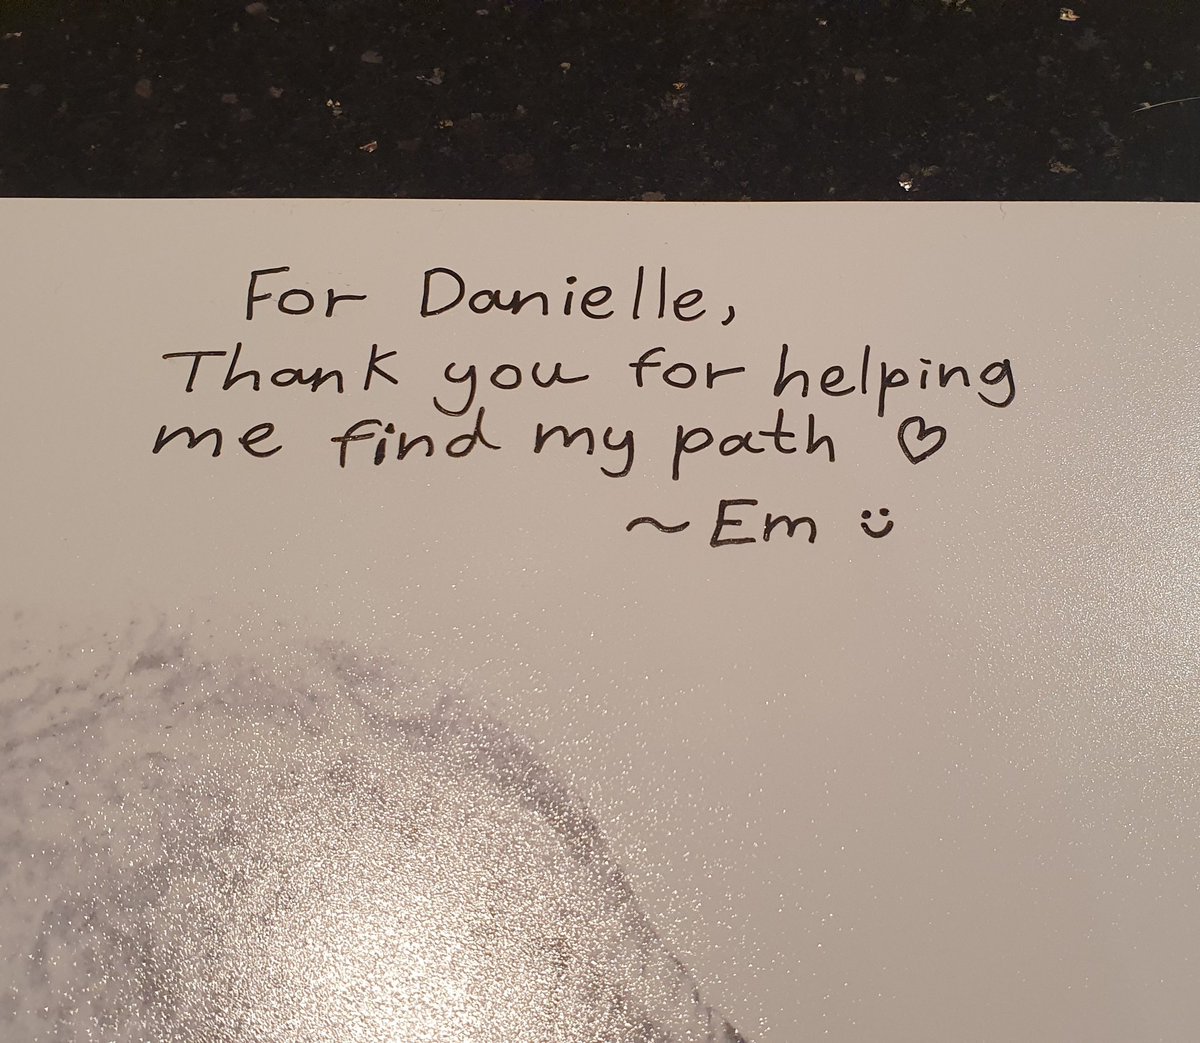 For Danielle,
Thank you for helping
me find my path ♡
~ Em :)